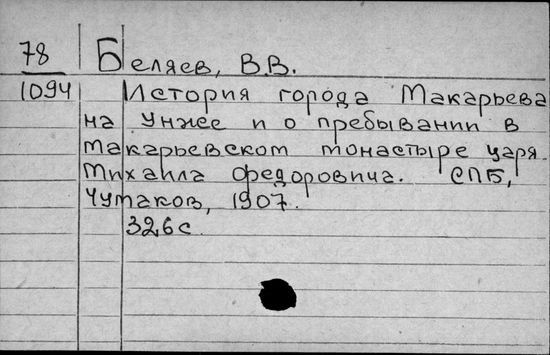 78
1094
Беляев, В.В.
История города Макарьева
на Унже и о пребывании в
Макарьевском монастыре царя
Михаила Федоровича. СПБ,
Чумаков, 1907.
326 с.